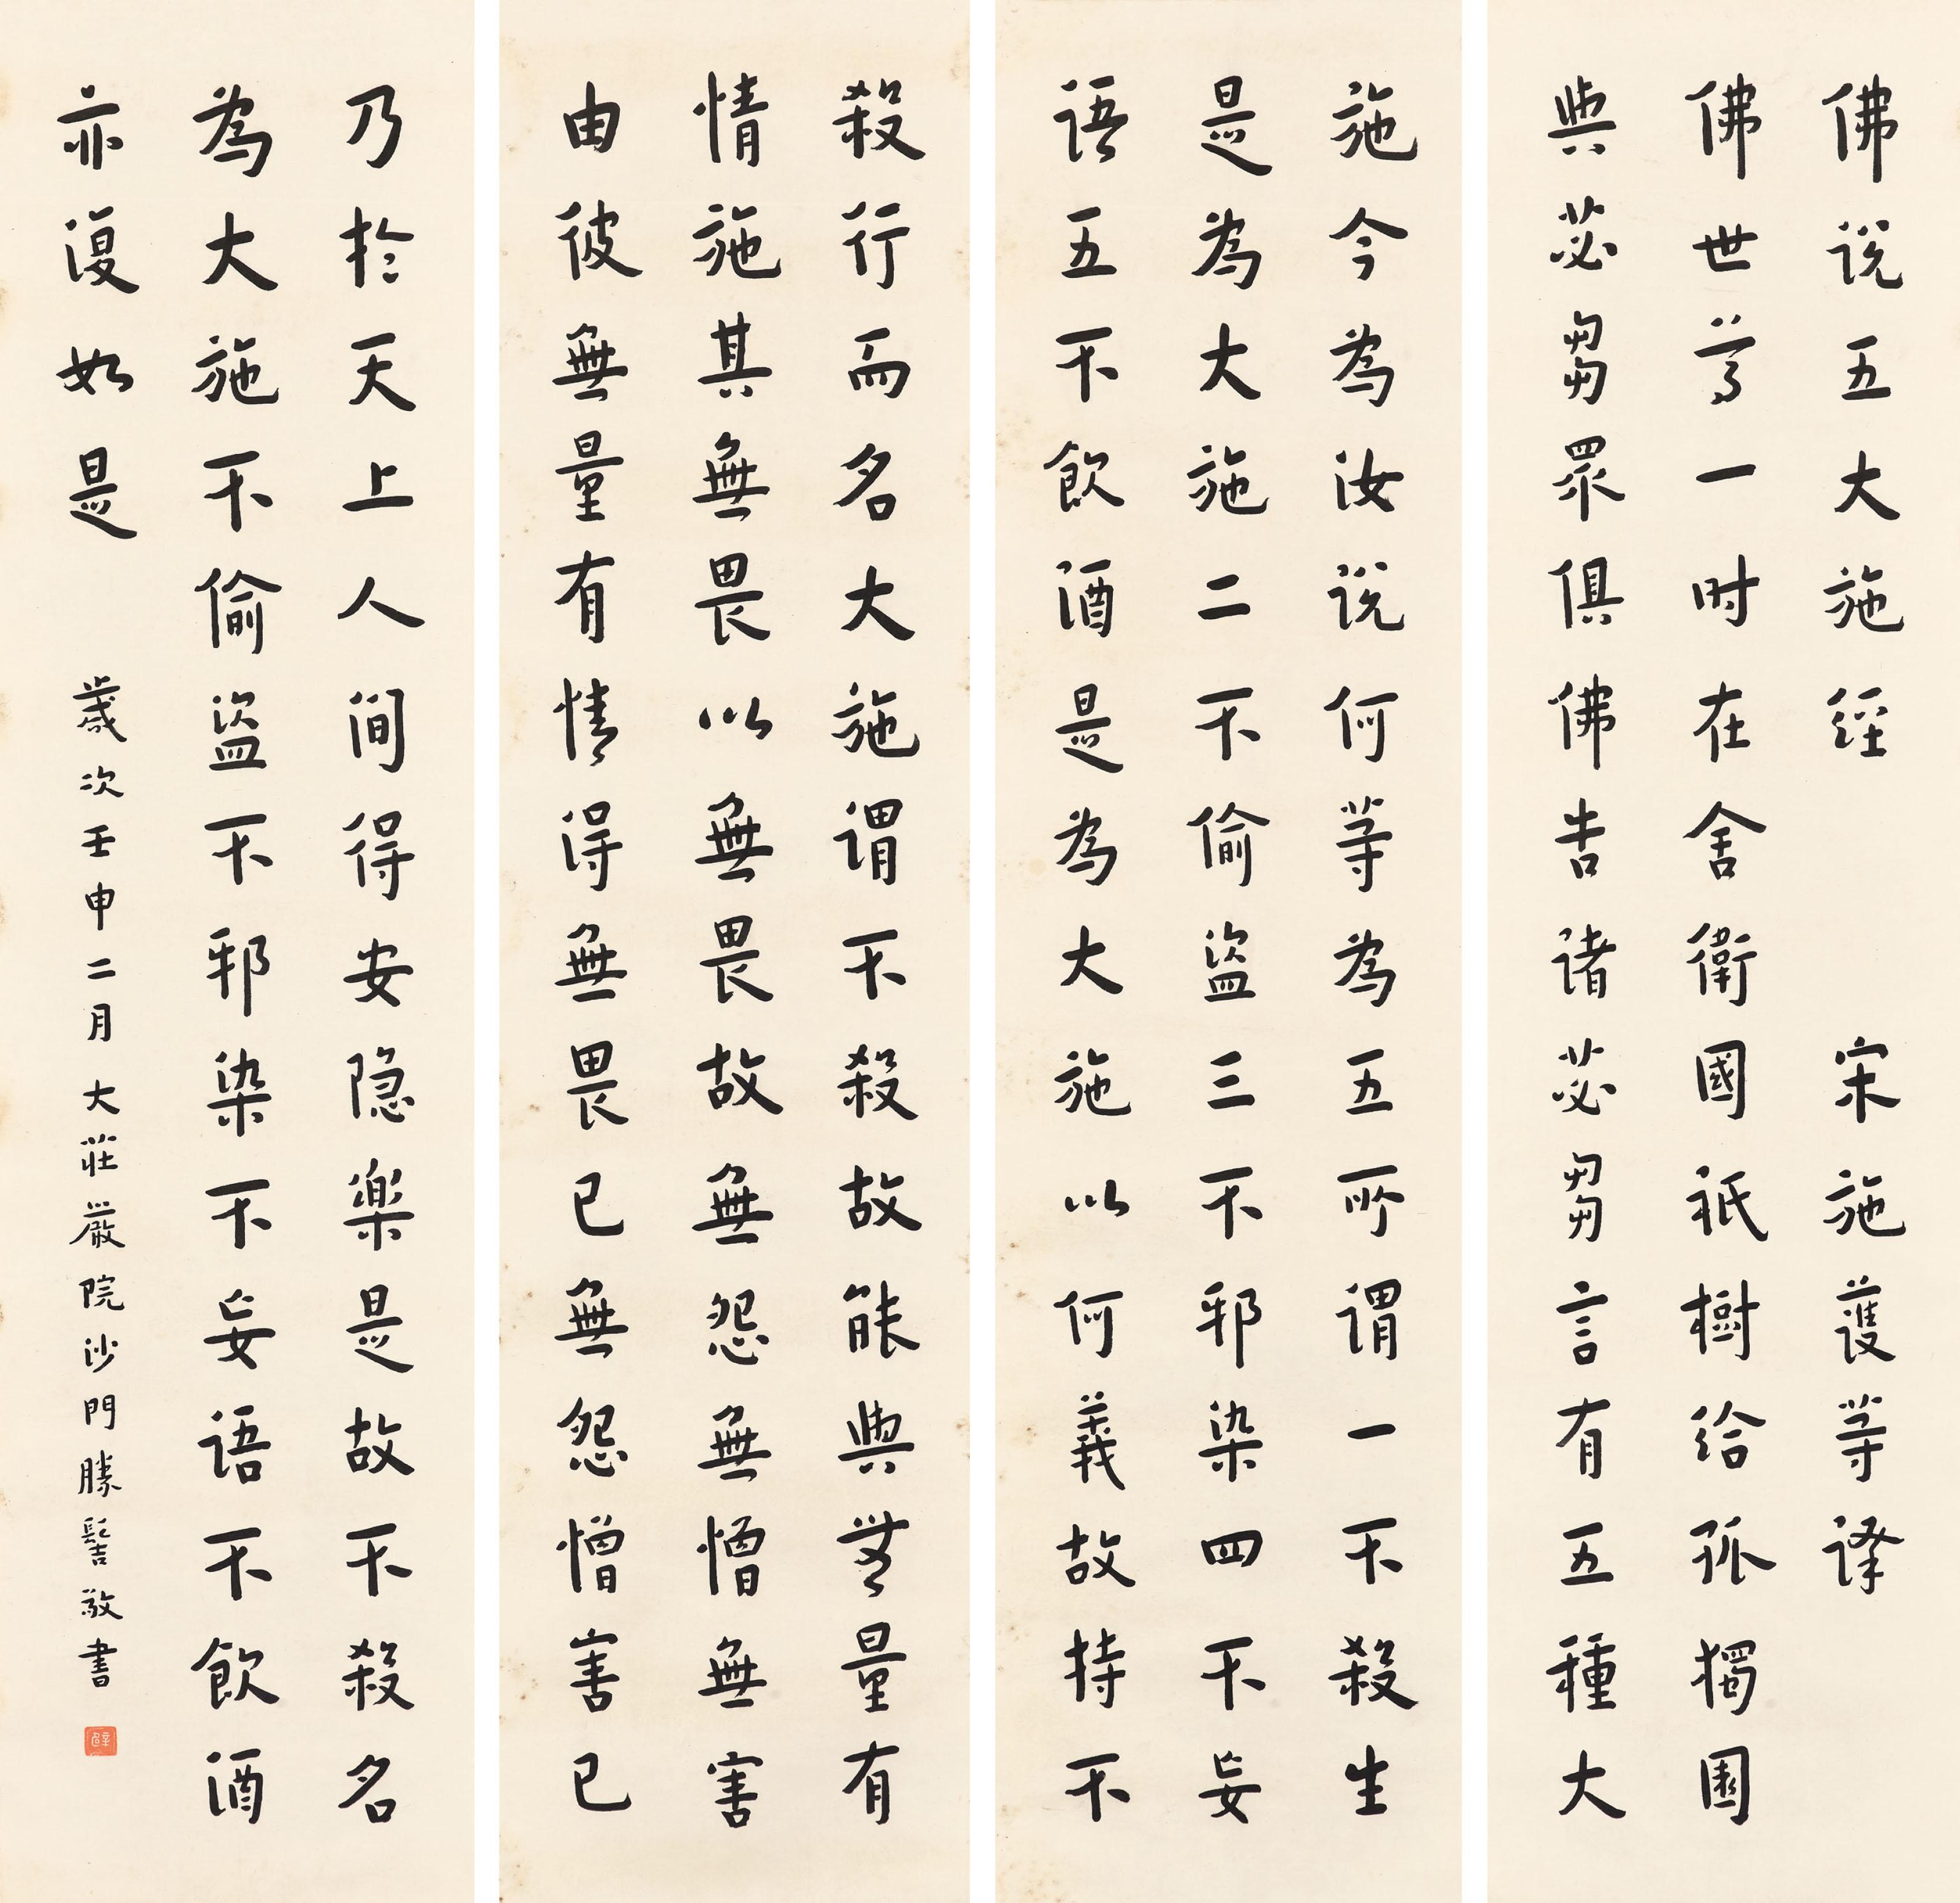 佛说五大施經　宋施護等译
佛世尊一时在舍衛國祇樹给孤獨園
與苾芻眾俱佛告诸苾芻言有五種大
施今為汝说何等為五所谓一不殺生
是為大施二不偷盜三不邪染四不妄
语五不飲酒是為大施以何義故持不
殺行而名大施谓不殺故能與無量有
情施其無畏以無畏故無怨無憎無害
由彼無量有情得無畏已無怨憎害已
乃於天上人间得安隐樂是故不殺名
為大施不偷盜不邪染不妄语不飲酒
亦復如是
歲次壬申二月大莊嚴院沙門勝髻敬書